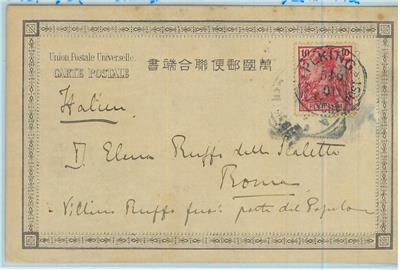 Union Postale Universelle.
CARTE POSTALE
書端合聯便郵國萬
10 10
PEKING
Italien
D. Elena Ruffo della Scaletta
Roma
Villino Ruffo fuori porta del Popolo